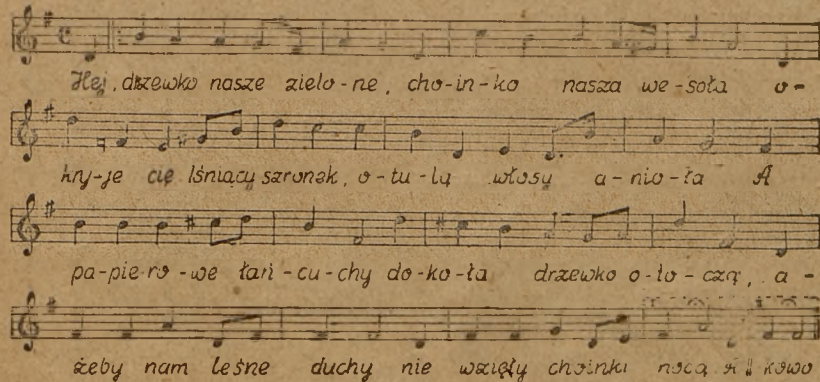 Hej, drzewko nasze zielo-ne, cho-in-ko nasza we-soła o-
kry-je cię lśniący szronek, o-tu-lą włosy a-nio-ła A
pa-pie-ro-we łań-cu-chy do-ko-ła drzewko o-to-czą, a-
żeby nam leśne duchy nie wzięły choinki nocą kowo